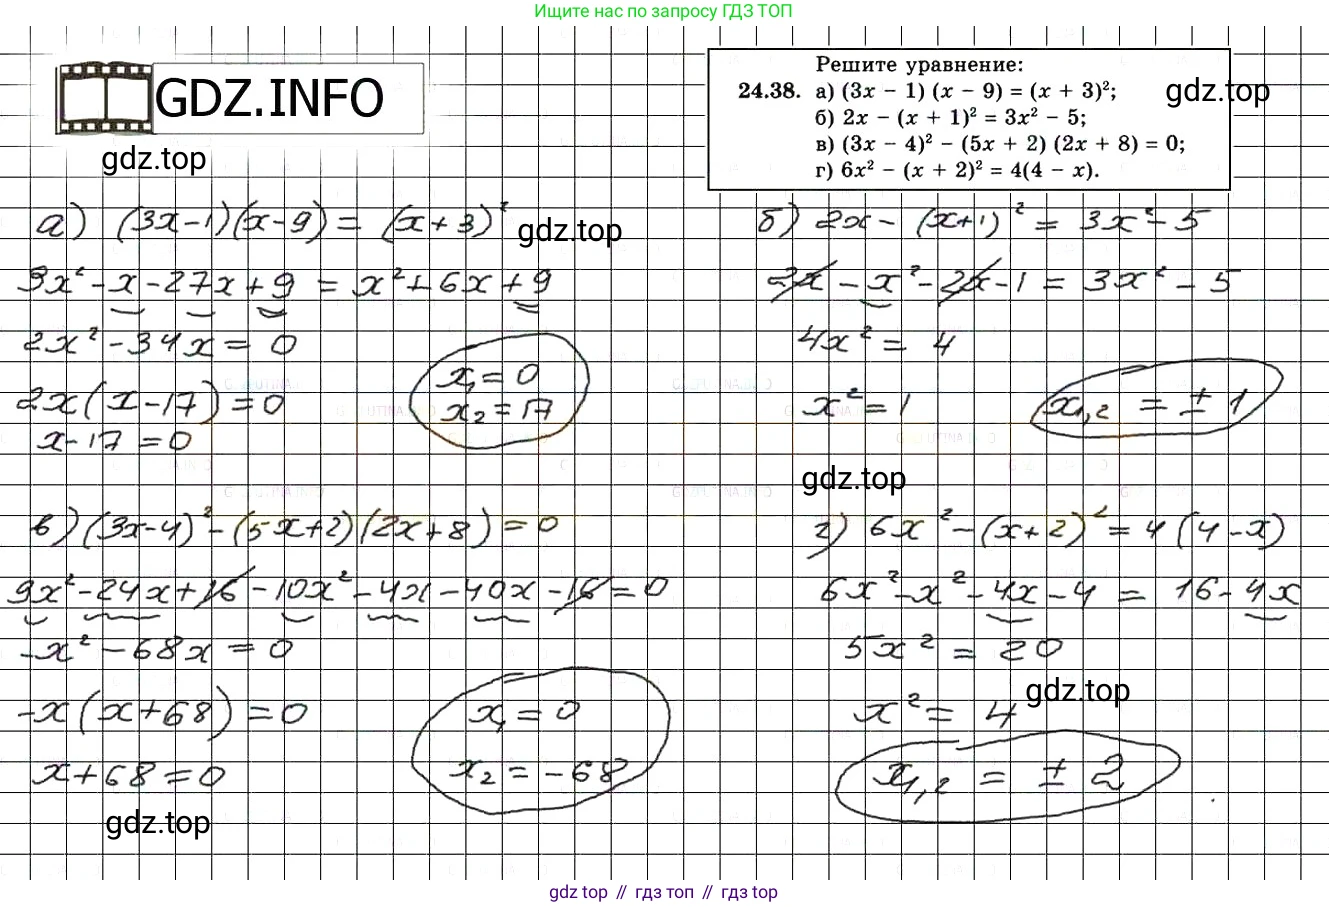 Ищите нас по запросу ГДЗ ТОП
GDZ.INFO
gdz.top
Решите уравнение:
24.38. а) (3x − 1) (x − 9) = (x + 3)²;
gdz.top
б) 2x − (x + 1)² = 3x² − 5;
в) (3x − 4)² − (5x + 2) (2x + 8) = 0;
г) 6x² − (x + 2)² = 4(4 − x).
а) (3x-1)(x-9) = (x+3)²
gdz.top
3x² - x - 27x + 9 = x² + 6x + 9
2x² - 34x = 0
2x(x-17) = 0
x-17 = 0
x₁ = 0
x₂ = 17
б) 2x - (x+1)² = 3x² - 5
2x - x² - 2x - 1 = 3x² - 5
4x² = 4
x² = 1
x₁,₂ = ± 1
gdz.top
в) (3x-4)² - (5x+2)(2x+8) = 0
9x² - 24x + 16 - 10x² - 4x - 40x - 16 = 0
-x² - 68x = 0
-x(x+68) = 0
x+68 = 0
x₁ = 0
x₂ = -68
gdz.top
г) 6x² - (x+2)² = 4(4-x)
6x² - x² - 4x - 4 = 16 - 4x
5x² = 20
gdz.top
x² = 4
x₁,₂ = ± 2
gdz top // гдз топ // gdz top